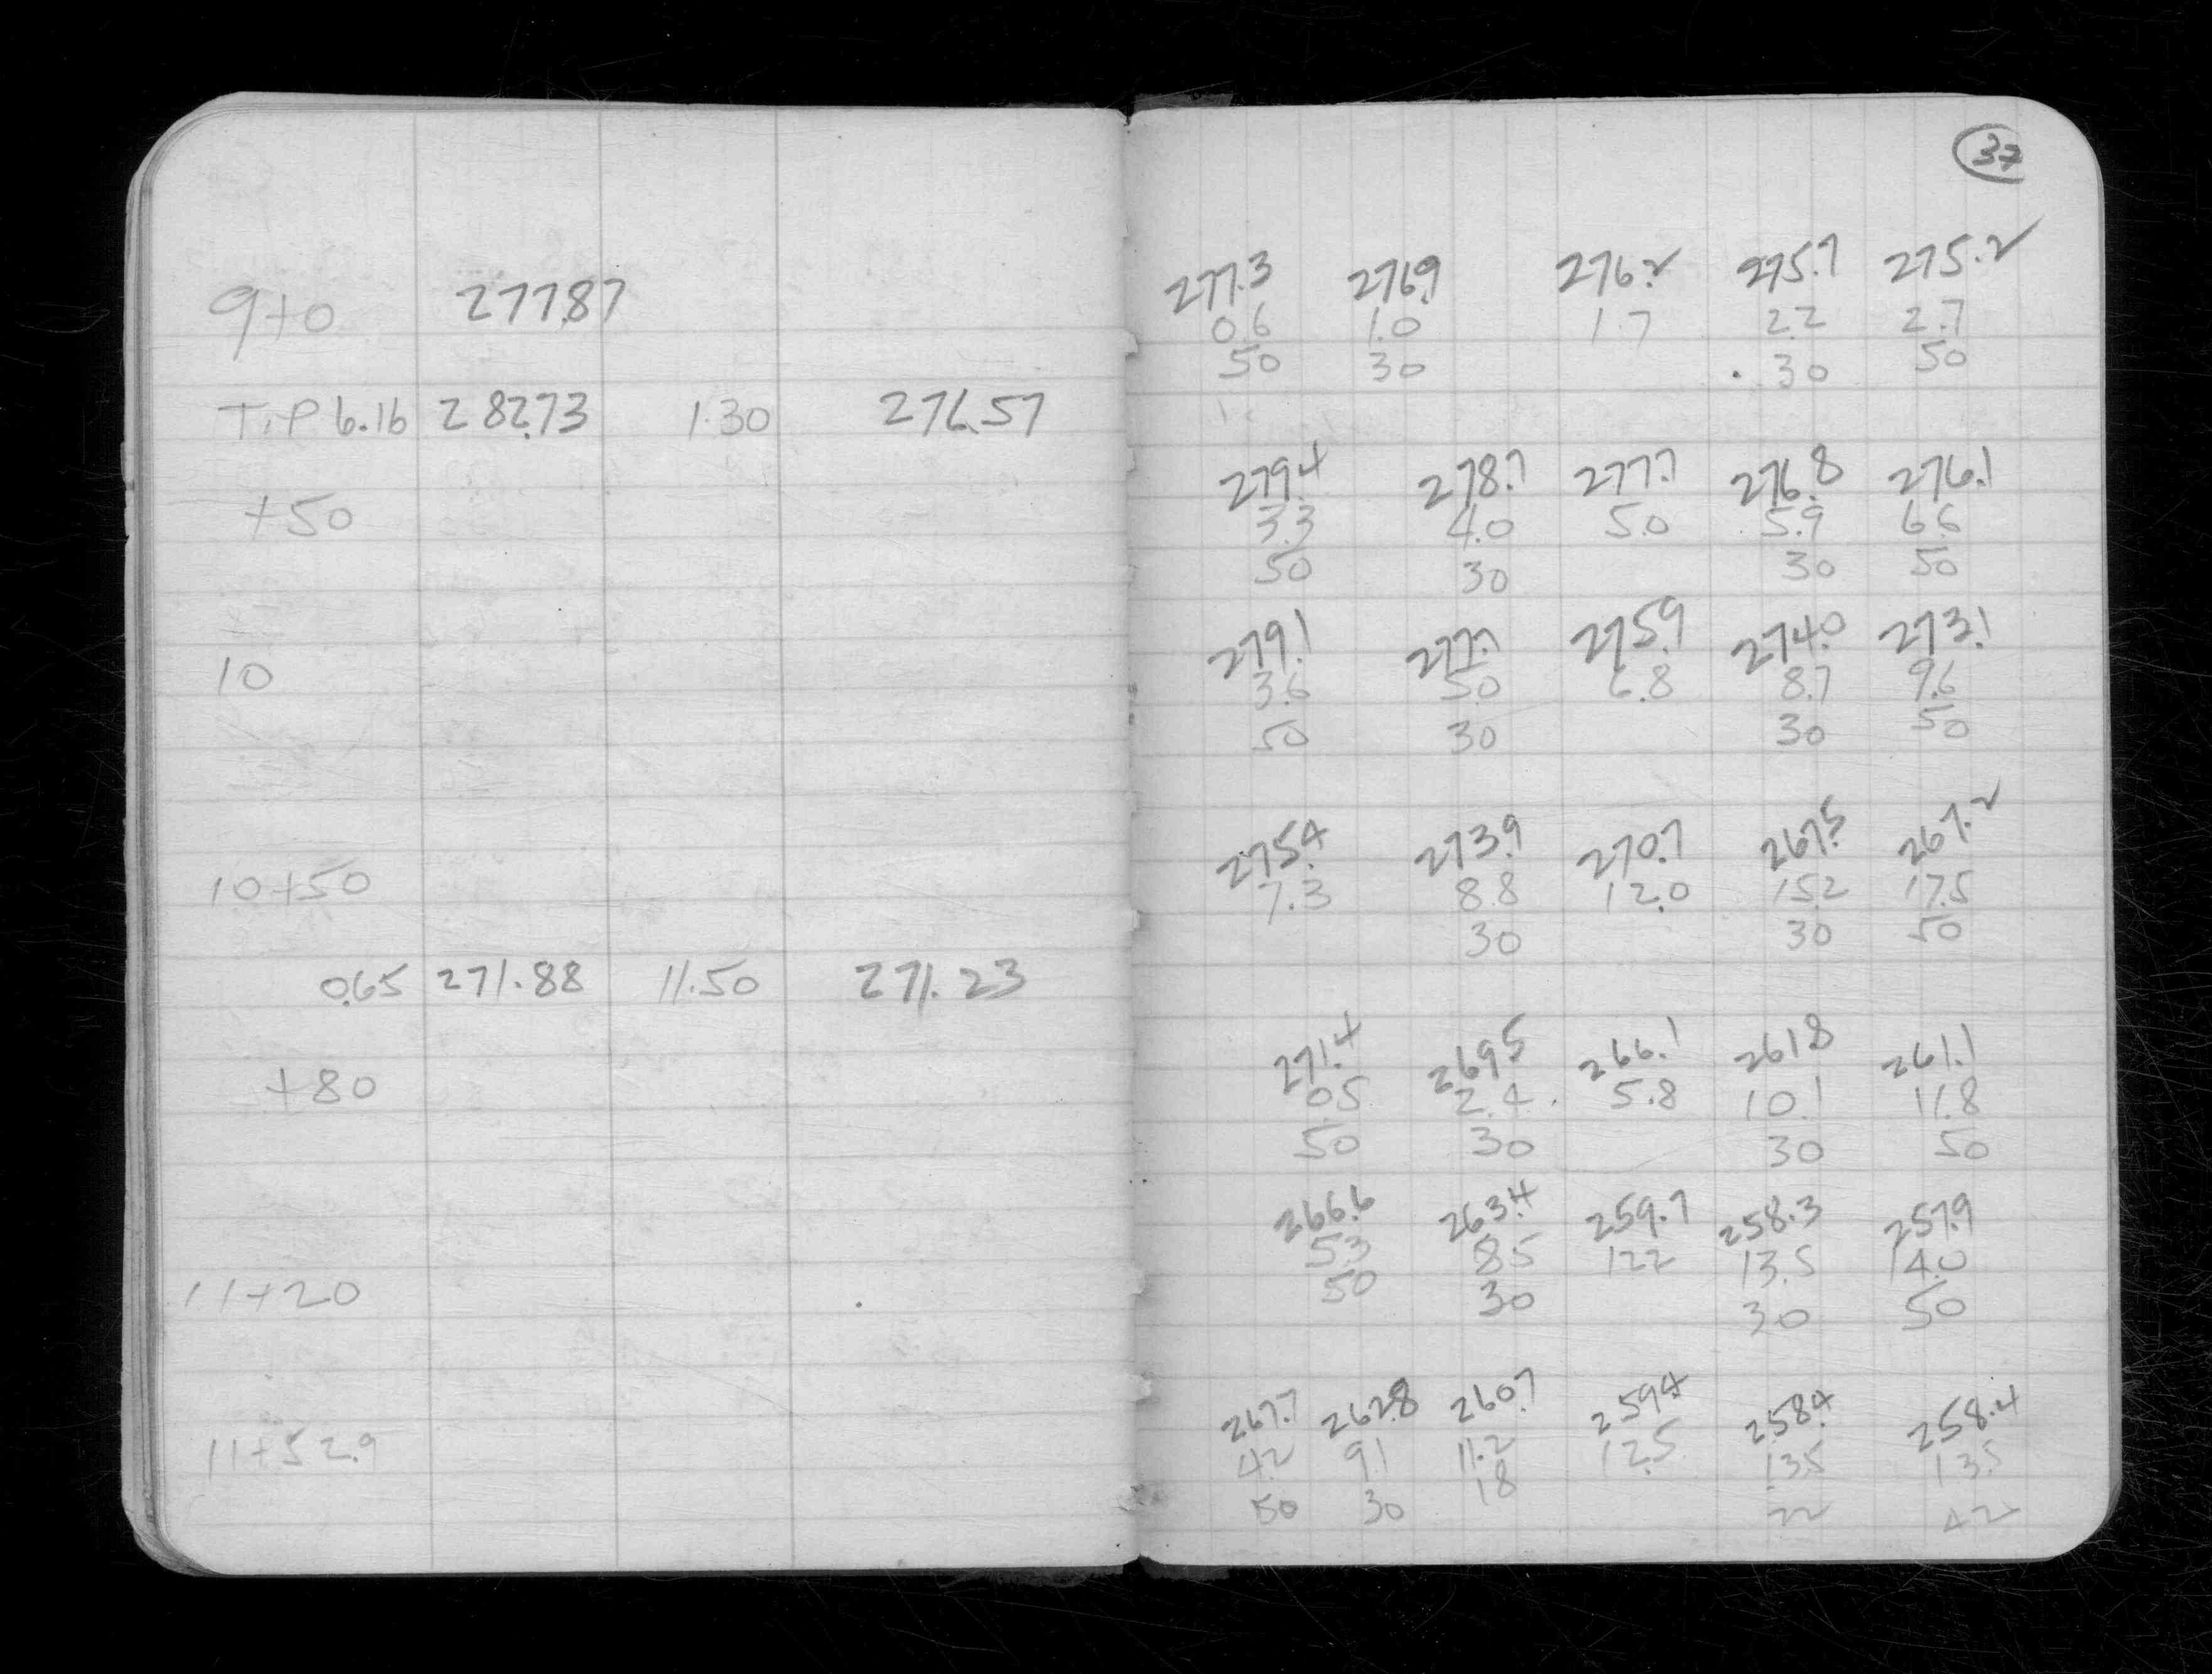 9+0 277.87
T.P 6.16 282.73 1.30 276.57
+50
10
10+50
0.65 271.88 11.50 271.23
+80
11+20
11+52.9
37
277.3 276.9 276.2 275.7 275.2
0.6 1.0 1.7 2.2 2.7
50 30 30 50
279.4 278.7 277.7 276.8 276.1
3.3 4.0 5.0 5.9 6.6
50 30 30 50
279.1 277.7 275.9 274.0 273.1
3.6 5.0 6.8 8.7 9.6
50 30 30 50
275.4 273.9 270.7 267.5 267.2
7.3 8.8 12.0 15.2 17.5
30 30 50
271.4 269.5 266.1 261.8 261.1
0.5 2.4 5.8 10.1 11.8
50 30 30 50
266.6 263.4 259.7 258.3 257.9
5.3 8.5 12.2 13.5 14.0
50 30 30 50
267.7 262.8 260.7 259.4 258.4 258.4
4.2 9.1 11.2 12.5 13.5 13.5
50 30 18 22 42